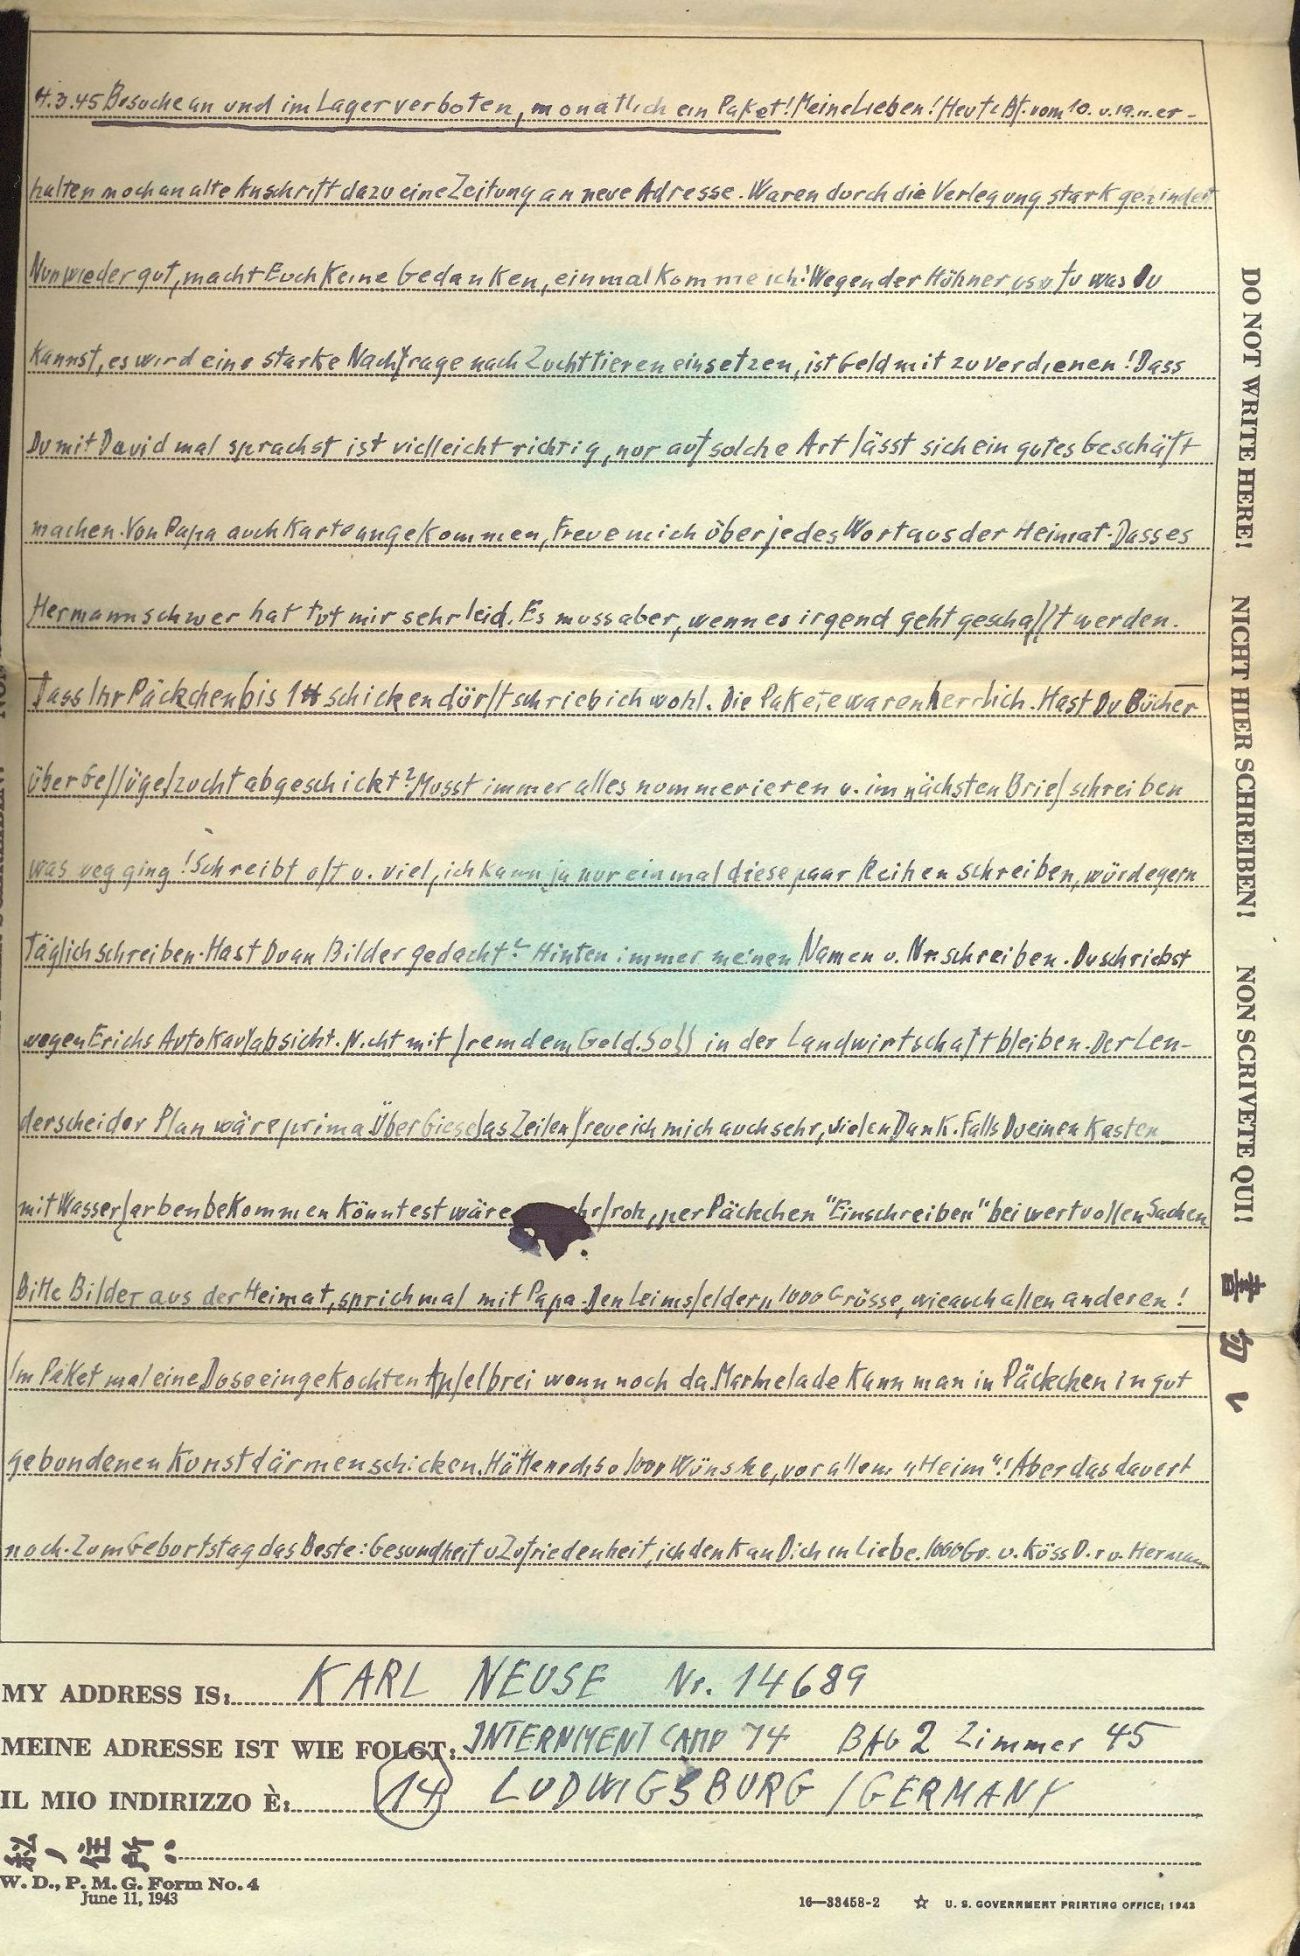 4.3.45 Besuche an und im Lager verboten, monatlich ein Paket! Meine Lieben! Heute Bf. vom 10. u. 19. er-
halten noch an alte Anschrift dazu eine Zeitung an neue Adresse. Waren durch die Verlegung stark gehindert
Nun wieder gut, macht Euch keine Gedanken, einmal komme ich! Wegen der Hühner, usw tu was Du
kannst, es wird eine starke Nachfrage nach Zuchttieren einsetzen, ist Geld mit zu verdienen! Dass
Du mit David mal sprachst ist vielleicht richtig, nur auf solche Art lässt sich ein gutes Geschäft
machen. Von Papa auch Karte angekommen, Freue mich über jedes Wort aus der Heimat. Dass es
Hermann schwer hat tut mir sehr leid. Es muss aber, wenn es irgend geht geschafft werden.
Dass Ihr Päckchen bis 1 ℔ schicken dürft schrieb ich wohl. Die Pakete waren herrlich. Hast Du Bücher
über Geflügelzucht abgeschickt? Musst immer alles nummerieren u. im nächsten Brief schreiben
was weg ging! Schreibt oft u. viel, ich kann ja nur einmal diese paar Reihen schreiben, würde gern
täglich schreiben. Hast Du an Bilder gedacht? Hinten immer meinen Namen u. Nr. schreiben. Du schriebst
wegen Erichs Autokaufabsicht. Nicht mit fremdem Geld. Soll in der Landwirtschaft bleiben. Der Len-
derscheider Plan wäre prima Über Giselas Zeilen freue ich mich auch sehr, vielen Dank. Falls Du einen Kasten
mit Wasserfarben bekommen könntest wäre froh, per Päckchen "Einschreiben" bei wertvollen Sachen
Bitte Bilder aus der Heimat, sprich mal mit Papa. Den Leimsfeldern 1000 Grüsse, wie auch allen anderen!
Im Paket mal eine Dose eingekochten Apfelbrei wenn noch da. Marmelade kann man in Päckchen in gut
gebundenen Kunstdärmen schicken. Hätte noch so 100 Wünsche, vor allem "Heim"! Aber das dauert
noch. Zum Geburtstag das Beste: Gesundheit u Zufriedenheit, ich denk an Dich in Liebe. 1000 Gr. u. Küss D. u. Hermann
DO NOT WRITE HERE! NICHT HIER SCHREIBEN! NON SCRIVETE QUI! 書勿レ
MY ADDRESS IS: KARL NEUSE Nr. 14689
MEINE ADRESSE IST WIE FOLGT: INTERNMENT CAMP 74 BAG 2 Zimmer 45
IL MIO INDIRIZZO È: 14 LUDWIGSBURG / GERMANY
私ノ住所:
W. D., P. M. G. Form No. 4
June 11, 1943
16—33458-2 ☆ U. S. GOVERNMENT PRINTING OFFICE: 1943